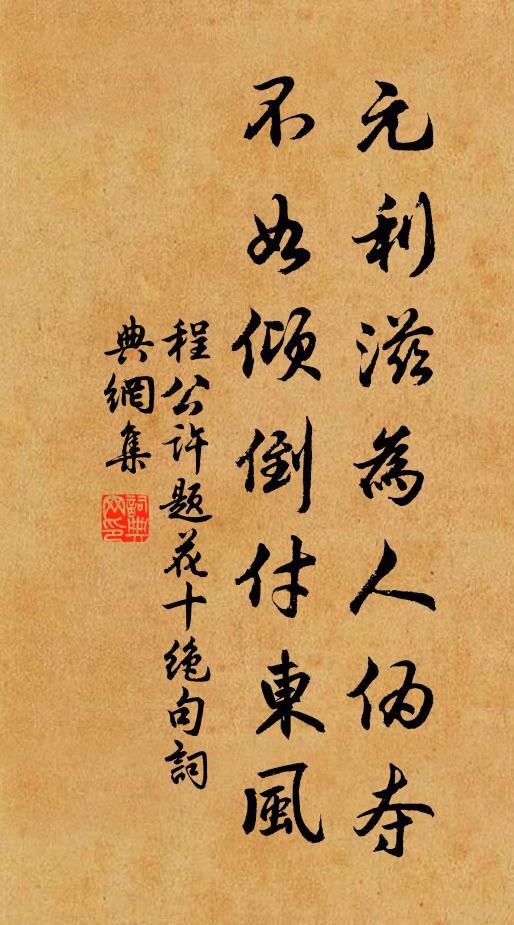 元利滋為人伪夺
不如倾倒付東風
程公许题花十绝句詞
典網集
詞典
网印